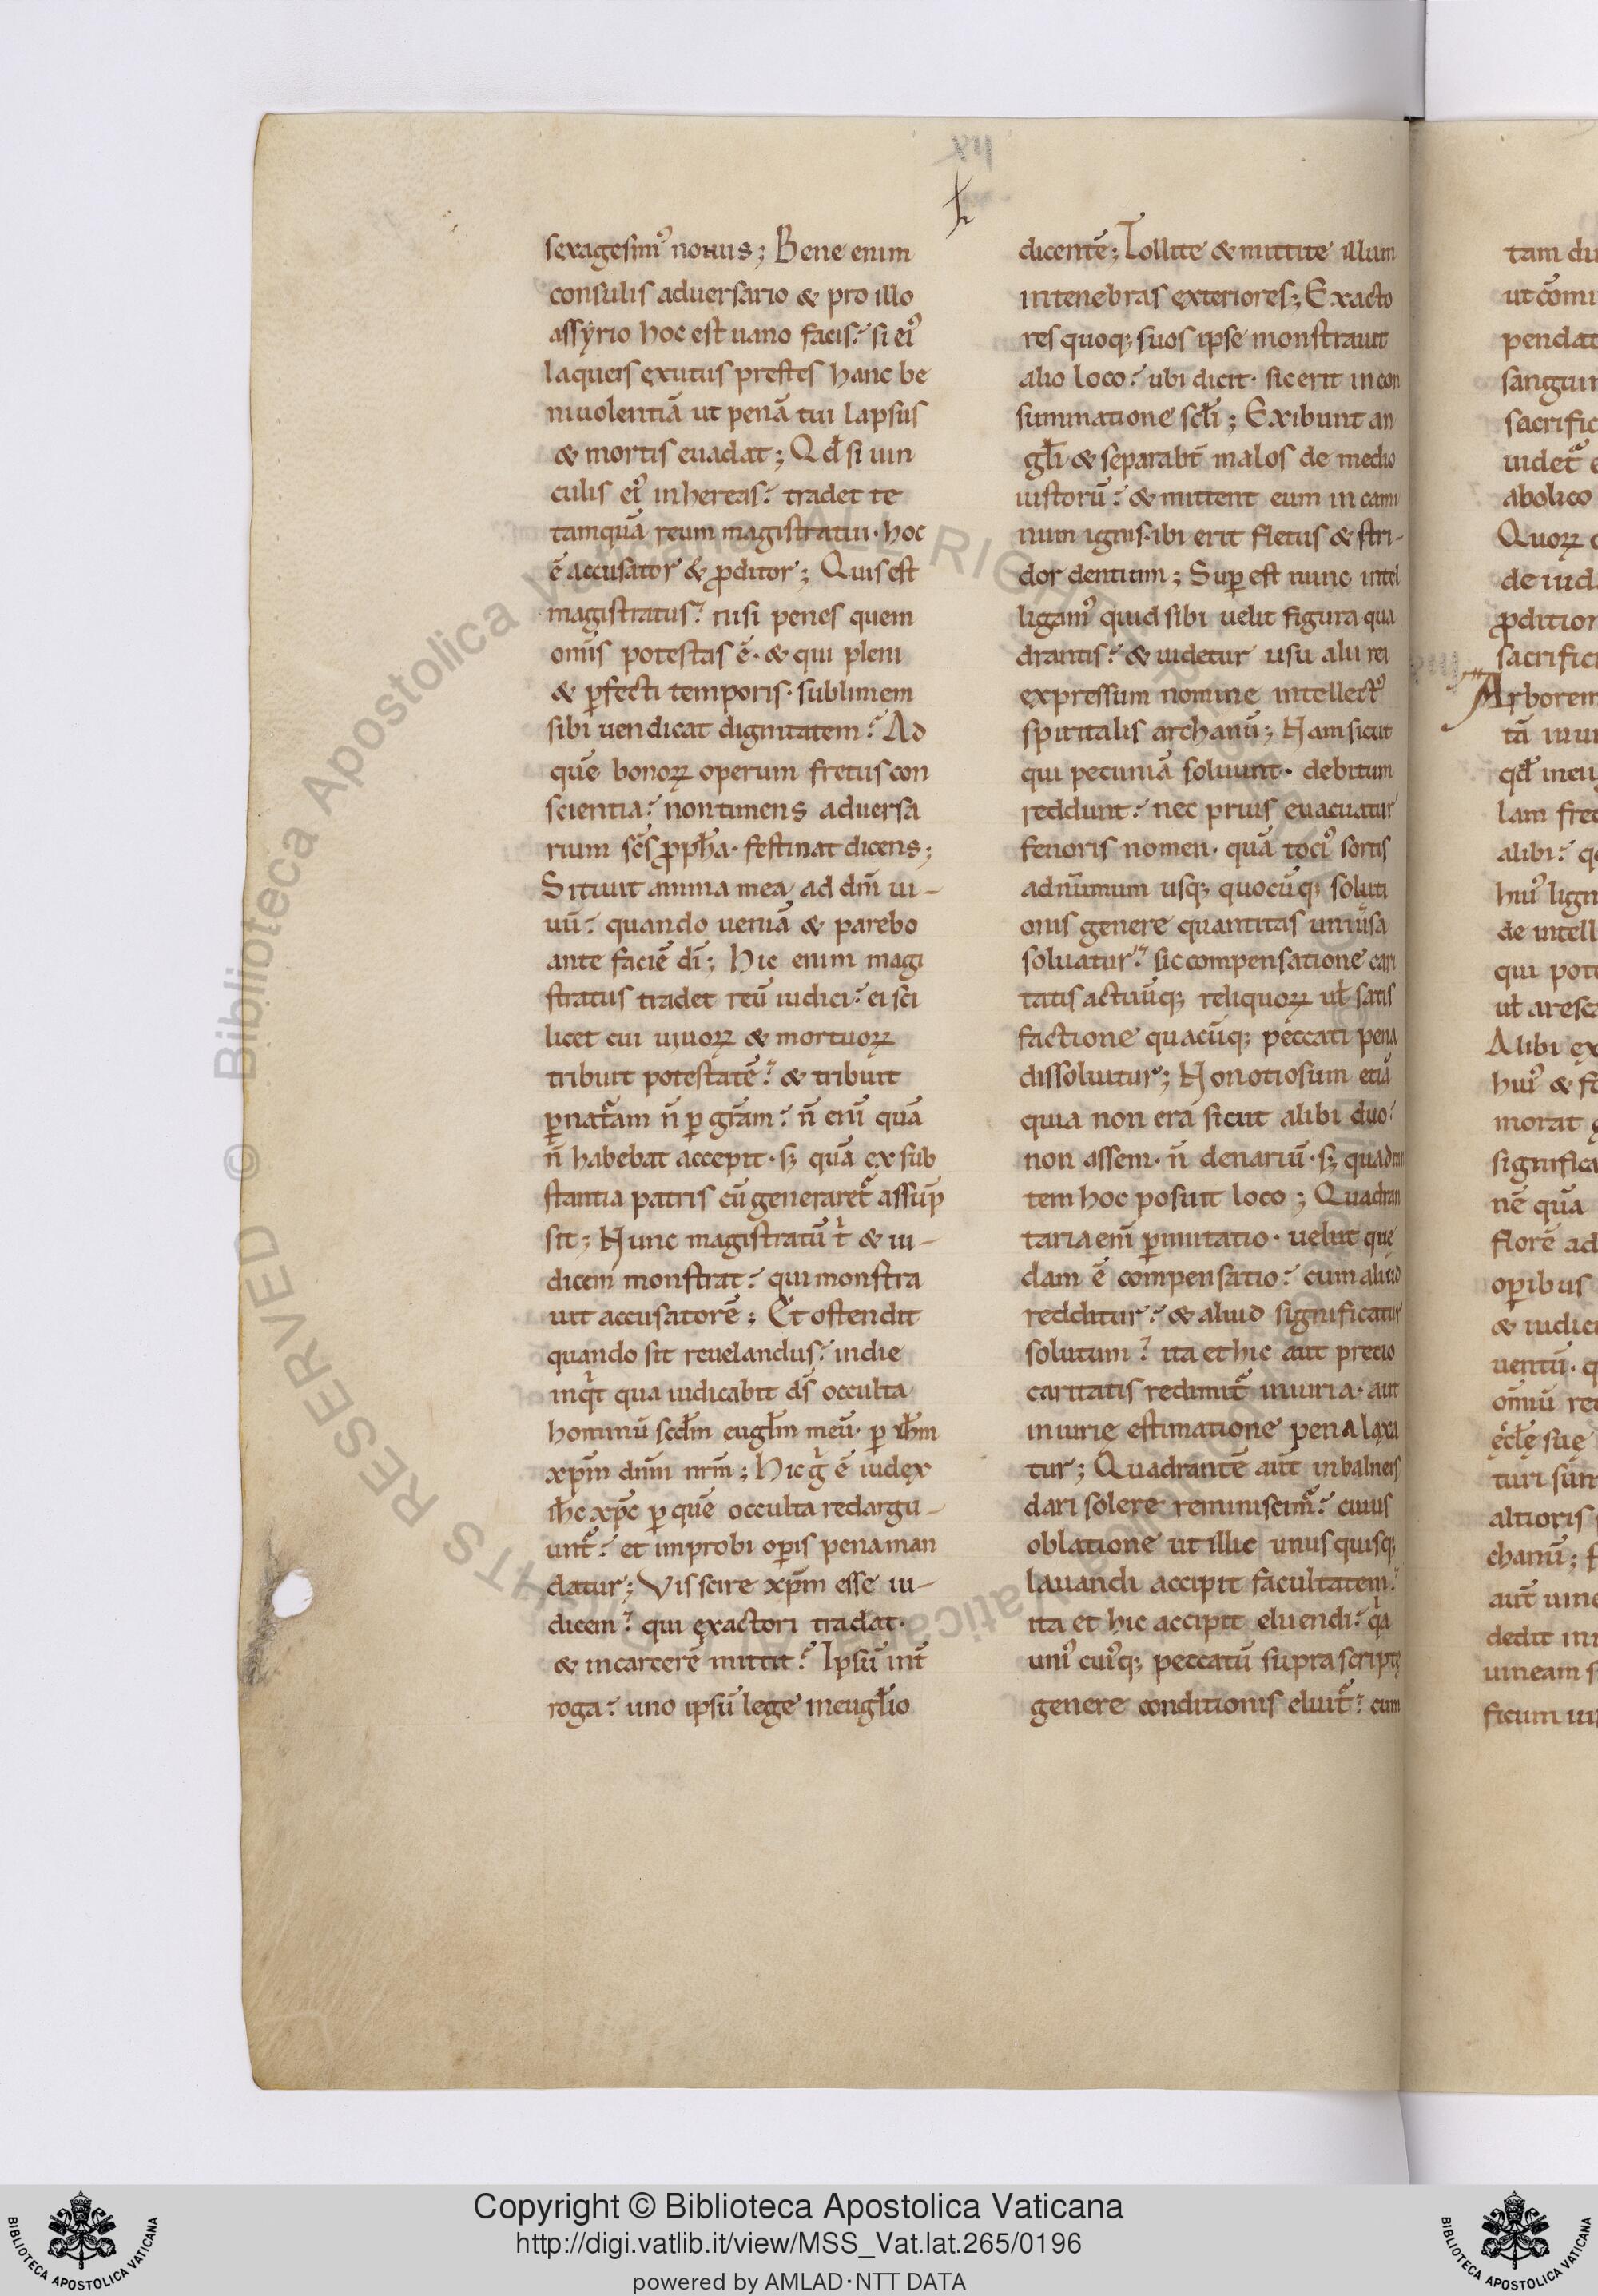 xii
sexagesim᾽ nonus; Bene enim
consulis aduersario & pro illo
assyrio hoc est uano facis? si ei᾽
laqueis exutus prestes hanc be
niuolentiā ut penā tui lapsus
& mortis euadat; Qđ si uin
culis ei᾽ inhereas? tradet te
tamquā reum magistratui· hoc
ē accusator & ꝓditor; Quis est
magistratus? nisi penes quem
om̄is potestas ē· & qui pleni
& ꝑfecti temporis· sublimem
sibi uendicat dignitatem? Ad
quē bonoꝝ operum fretus con
scientia? non timens aduersa
rium sc̄s ꝓpħa· festinat dicens;
Sitiuit anima mea ad dm̄ ui-
uū? quando ueniā & parebo
ante faciē dī; Hic enim magi
stratus tradet reū iudici? ei sci
licet cui uiuoꝝ & mortuoꝝ
tribuit potestatē? & tribuit
ꝑ nat̄am n̄ ꝑ gr̄am? n̄ eni̅ quā
n̄ habebat accepit· sꝫ quā ex sub
stantia patris cū generaret᷑ assūp
sit; Hunc magistratū t̄ & iu-
dicem monstrat? qui monstra
uit accusatorē; Et ostendit
quando sit reuelandus? in die
inqͥt qua iudicabit ds̄ occulta
hominū scđm eugłm meū· ꝑ iħm
xp̄m dn̄m nr̄m; Hic gͥ ē iudex
iħc xp̄c ꝑ quē occulta redargu-
unt᷑? et improbi oꝑis pena man
datur; Vis scire xp̄m esse iu-
dicem? qui exactori tradat·
& in carcerē mittit? Ipsū int̄
roga? uno ipsū lege in eugłio
dicentē; Tollite & mittite illum
in tenebras exteriores; Exacto
res quoqꝫ suos ipse monstrauit
alio loco? ubi dicit· sic erit in con
summatione scłi; Exibunt an
głi & separabt̄ malos de medio
iustorū? & mittent eum in cami
num ignis· ibi erit fletus & stri-
dor dentium; Suꝑ est nunc intel
ligam᾽ quid sibi uelit figura qua
drantis? & uidetur usu alii rei
expressum nomine intellect᾽
spiritalis archanū; Nam sicut
qui pecuniā soluunt· debitum
reddunt? nec prius euacuatur
fenoris nomen· quā toci᾽ sortis
ad nūmum usqꝫ quocūqꝫ soluti
onis genere quantitas uniūsa
soluatur? sic compensatione cari
tatis actuūqꝫ reliquoꝝ uł satis
factione quacūqꝫ peccati pena
dissoluitur; Non otiosum etiā
quia non era sicut alibi duo?
non assem· n̄ denariū· sꝫ quadran
tem hoc posuit loco; Quadran
taria eni̅ ꝑmutatio· uelut quę
dam ē compensatio? cum aliud
redditur? & aliud significatur
solutum? ita et hic aut pretio
caritatis redimit᷑ iniuria· aut
iniurię estimatione pena laxa
tur; Quadrantē aut̄ in balneis
dari solere reminiscim᷑? cuius
oblatione ut illic unus quisqꝫ
lauandi accipit facultatem?
ita et hic accipit eluendi? qͣa
uni᾽ cui᾽qꝫ peccatū supra scriptę
genere conditionis eluit᷑? cum
tam du
ut cōmu
pendat
sangui
sacrific
uidet᷑
abolico
Quoꝝ
de iud
ꝓdition
sacrifici
Arborem
tā inu
qđ
lam fre
alibi?
hui᾽ lign
de intell
qui pot
uł aresc
Alibi ex
hui᾽ &
morat
significa
nē quā
florē ad
oꝑibus
& iudici
uentū·
om̄iū re
ęcłę suę
turi sūn
altioris
chanū;
aut̄ uine
dedit in
uineam
ficum
Copyright © Biblioteca Apostolica Vaticana
http://digi.vatlib.it/view/MSS_Vat.lat.265/0196
powered by AMLAD·NTT DATA
BIBLIOTECA APOSTOLICA VATICANA
BIBLIOTECA APOSTOLICA VATICANA
© Biblioteca Apostolica Vaticana ALL RIGHTS RESERVED